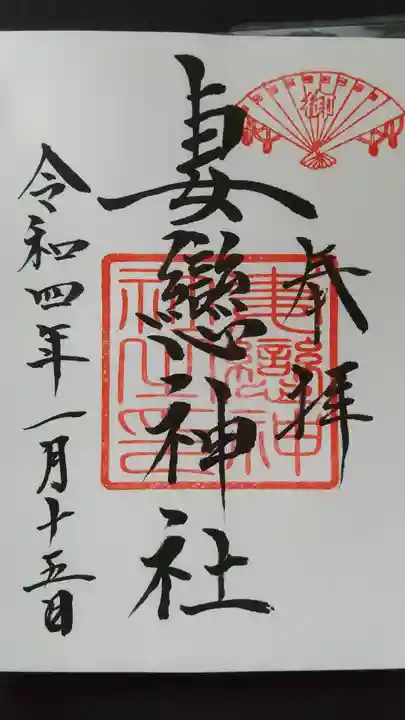 奉拝
妻戀神社
令和四年一月十五日
妻戀神
社之印